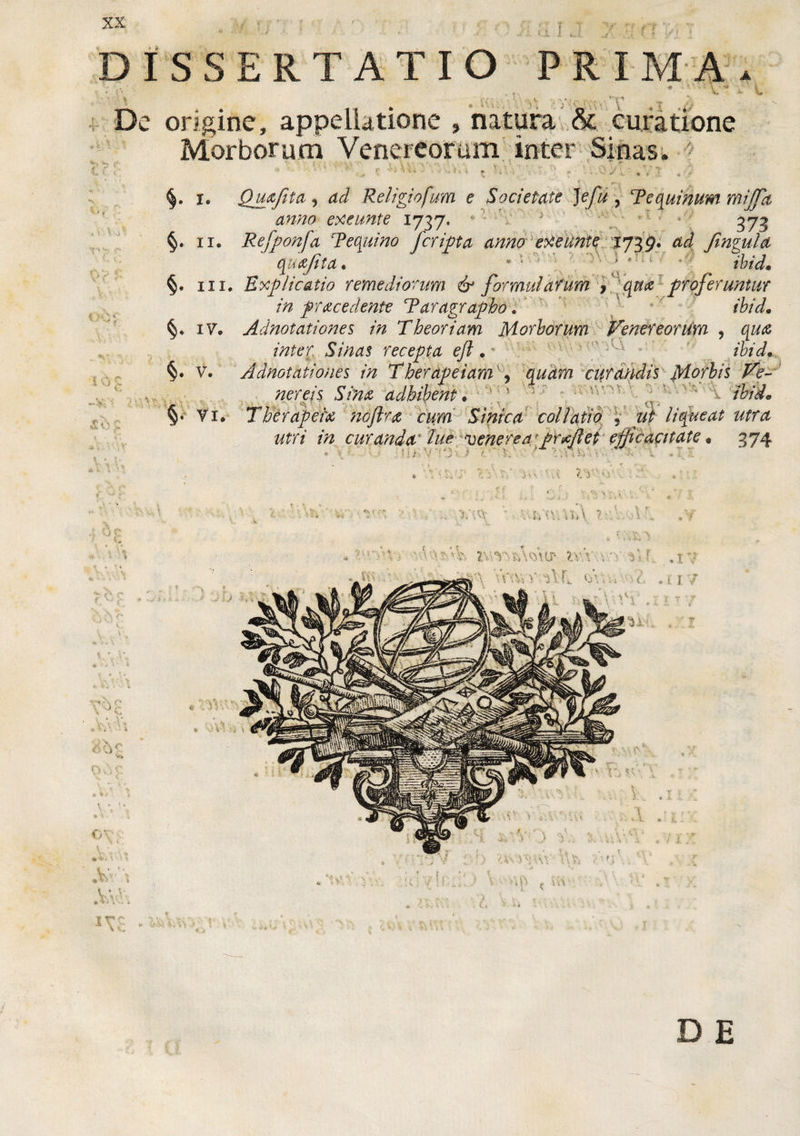 XX
DISSERTATIO PRIMA.
De origine, appellatione, natura & curatione
Morborum Venereorum inter Sinas.
§. I. Quæſita, ad Religioſum e Societate Jeſu, Pequinum miſſa
anno exeunte 1737. 373
§. II. Reſponſa Pequino ſcripta anno exeunte 1739. ad ſingula
quæſita. ibid.
§. III. Explicatio remediorum & formularum, quæ proferuntur
in præcedente Paragrapho. ibid.
§. IV. Adnotationes in Theoriam Morborum Venereorum, quæ
inter Sinas recepta eſt. ibid.
§. V. Adnotationes in Therapeiam, quam curandis Morbis Ve-
nereis Sinæ adhibent. ibid.
§. VI. Therapeiæ noſtræ cum Sinica collatio, ut liqueat utra
utri in curanda lue venerea præſtet efficacitate. 374
DE